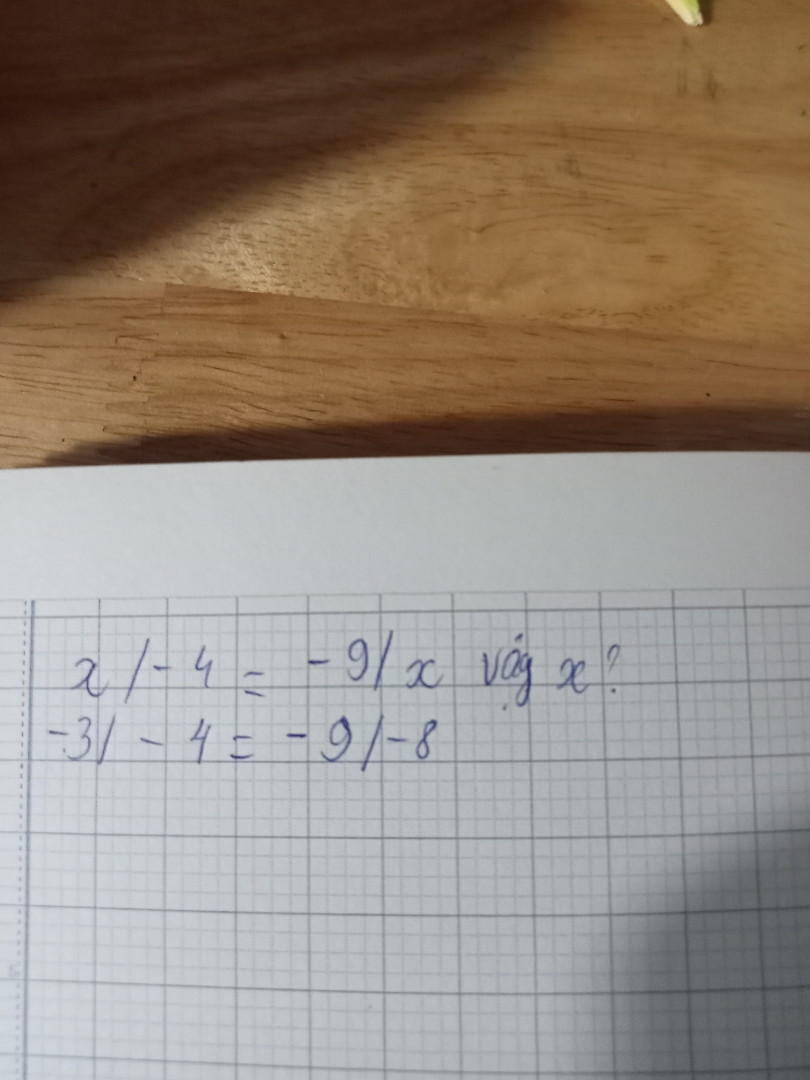 x/-4 = -9/x vậy x?
-3/-4 = -9/-8